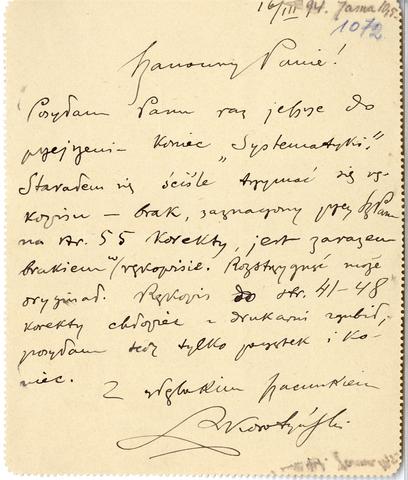 16/III 94. Jasna 10,5.
1072
Szanowny Panie!
Posyłam Panu raz jeszcze do
przejrzenia koniec „Systematyki".
Starałem się ściśle trzymać się rę-
kopisu — brak, zaznaczony przez Sz Pana
na str. 55 korekty, jest zarazem
brakiem w rękopisie. Rozstrzygnąć może
oryginał. Rękopis do str. 41–48
korekty chłopiec z drukarni zgubił,
posyłam tedy tylko początek i ko-
niec.
Z głębokim szacunkiem